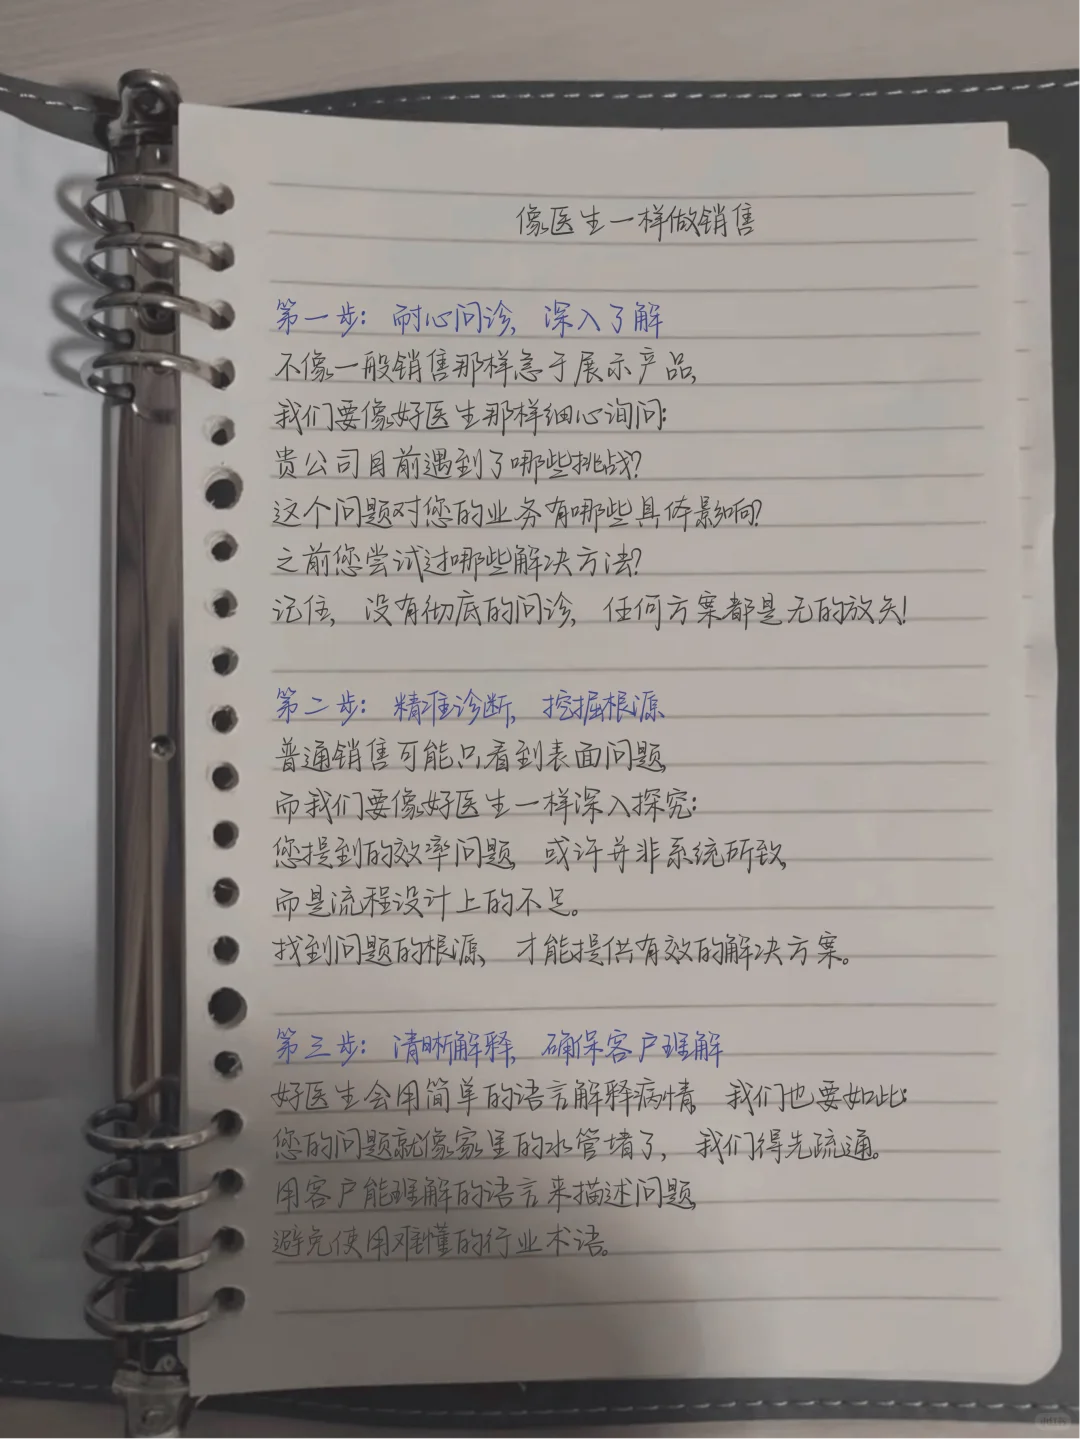 像医生一样做销售
第一步：耐心问诊，深入了解
不像一般销售那样急于展示产品，
我们要像好医生那样细心询问：
贵公司目前遇到了哪些挑战？
这个问题对您的业务有哪些具体影响？
之前您尝试过哪些解决方法？
记住，没有彻底的问诊，任何方案都是无的放矢！
第二步：精准诊断，挖掘根源
普通销售可能只看到表面问题，
而我们要像好医生一样深入探究：
您提到的效率问题，或许并非系统所致，
而是流程设计上的不足。
找到问题的根源，才能提供有效的解决方案。
第三步：清晰解释，确保客户理解
好医生会用简单的语言解释病情，我们也要如此：
您的问题就像家里的水管堵了，我们得先疏通。
用客户能理解的语言来描述问题，
避免使用难懂的行业术语。
小红书